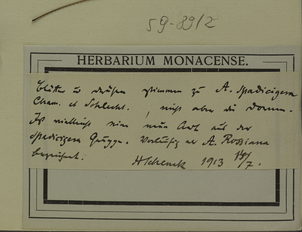 59-8912
HERBARIUM MONACENSE.
Blüten u. drüsen stimmen zu A. spadicigera
Cham. et Schlecht., nicht aber die Dornen.
Ist vielleicht eine neue Art aus der
spadicigera Gruppe. Vorläufig als A. Rossiana
bezeichnet. HSchenck 1913 /7.